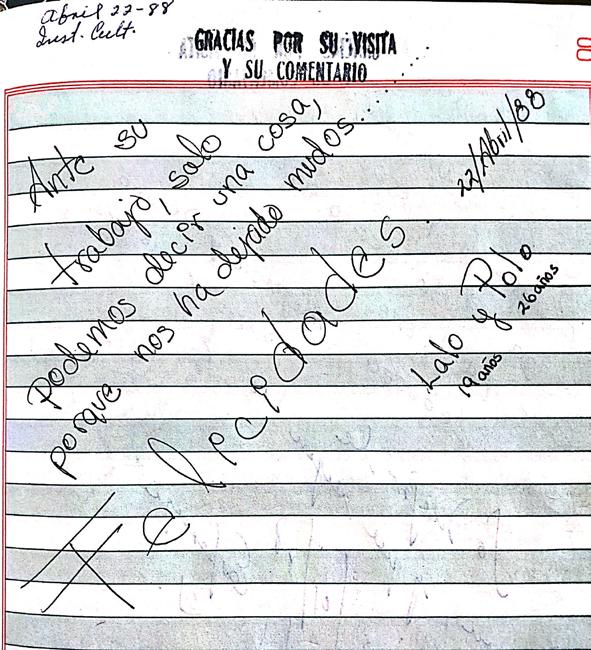 Abril 22-88
Inst. Cult.
GRACIAS POR SU VISITA
Y SU COMENTARIO
Ante su
trabajo, solo
Podemos decir una cosa,
porque nos ha dejado mudos....
Felicidades.
22/Abril/88
Lalo y Polo
19 años 26 años